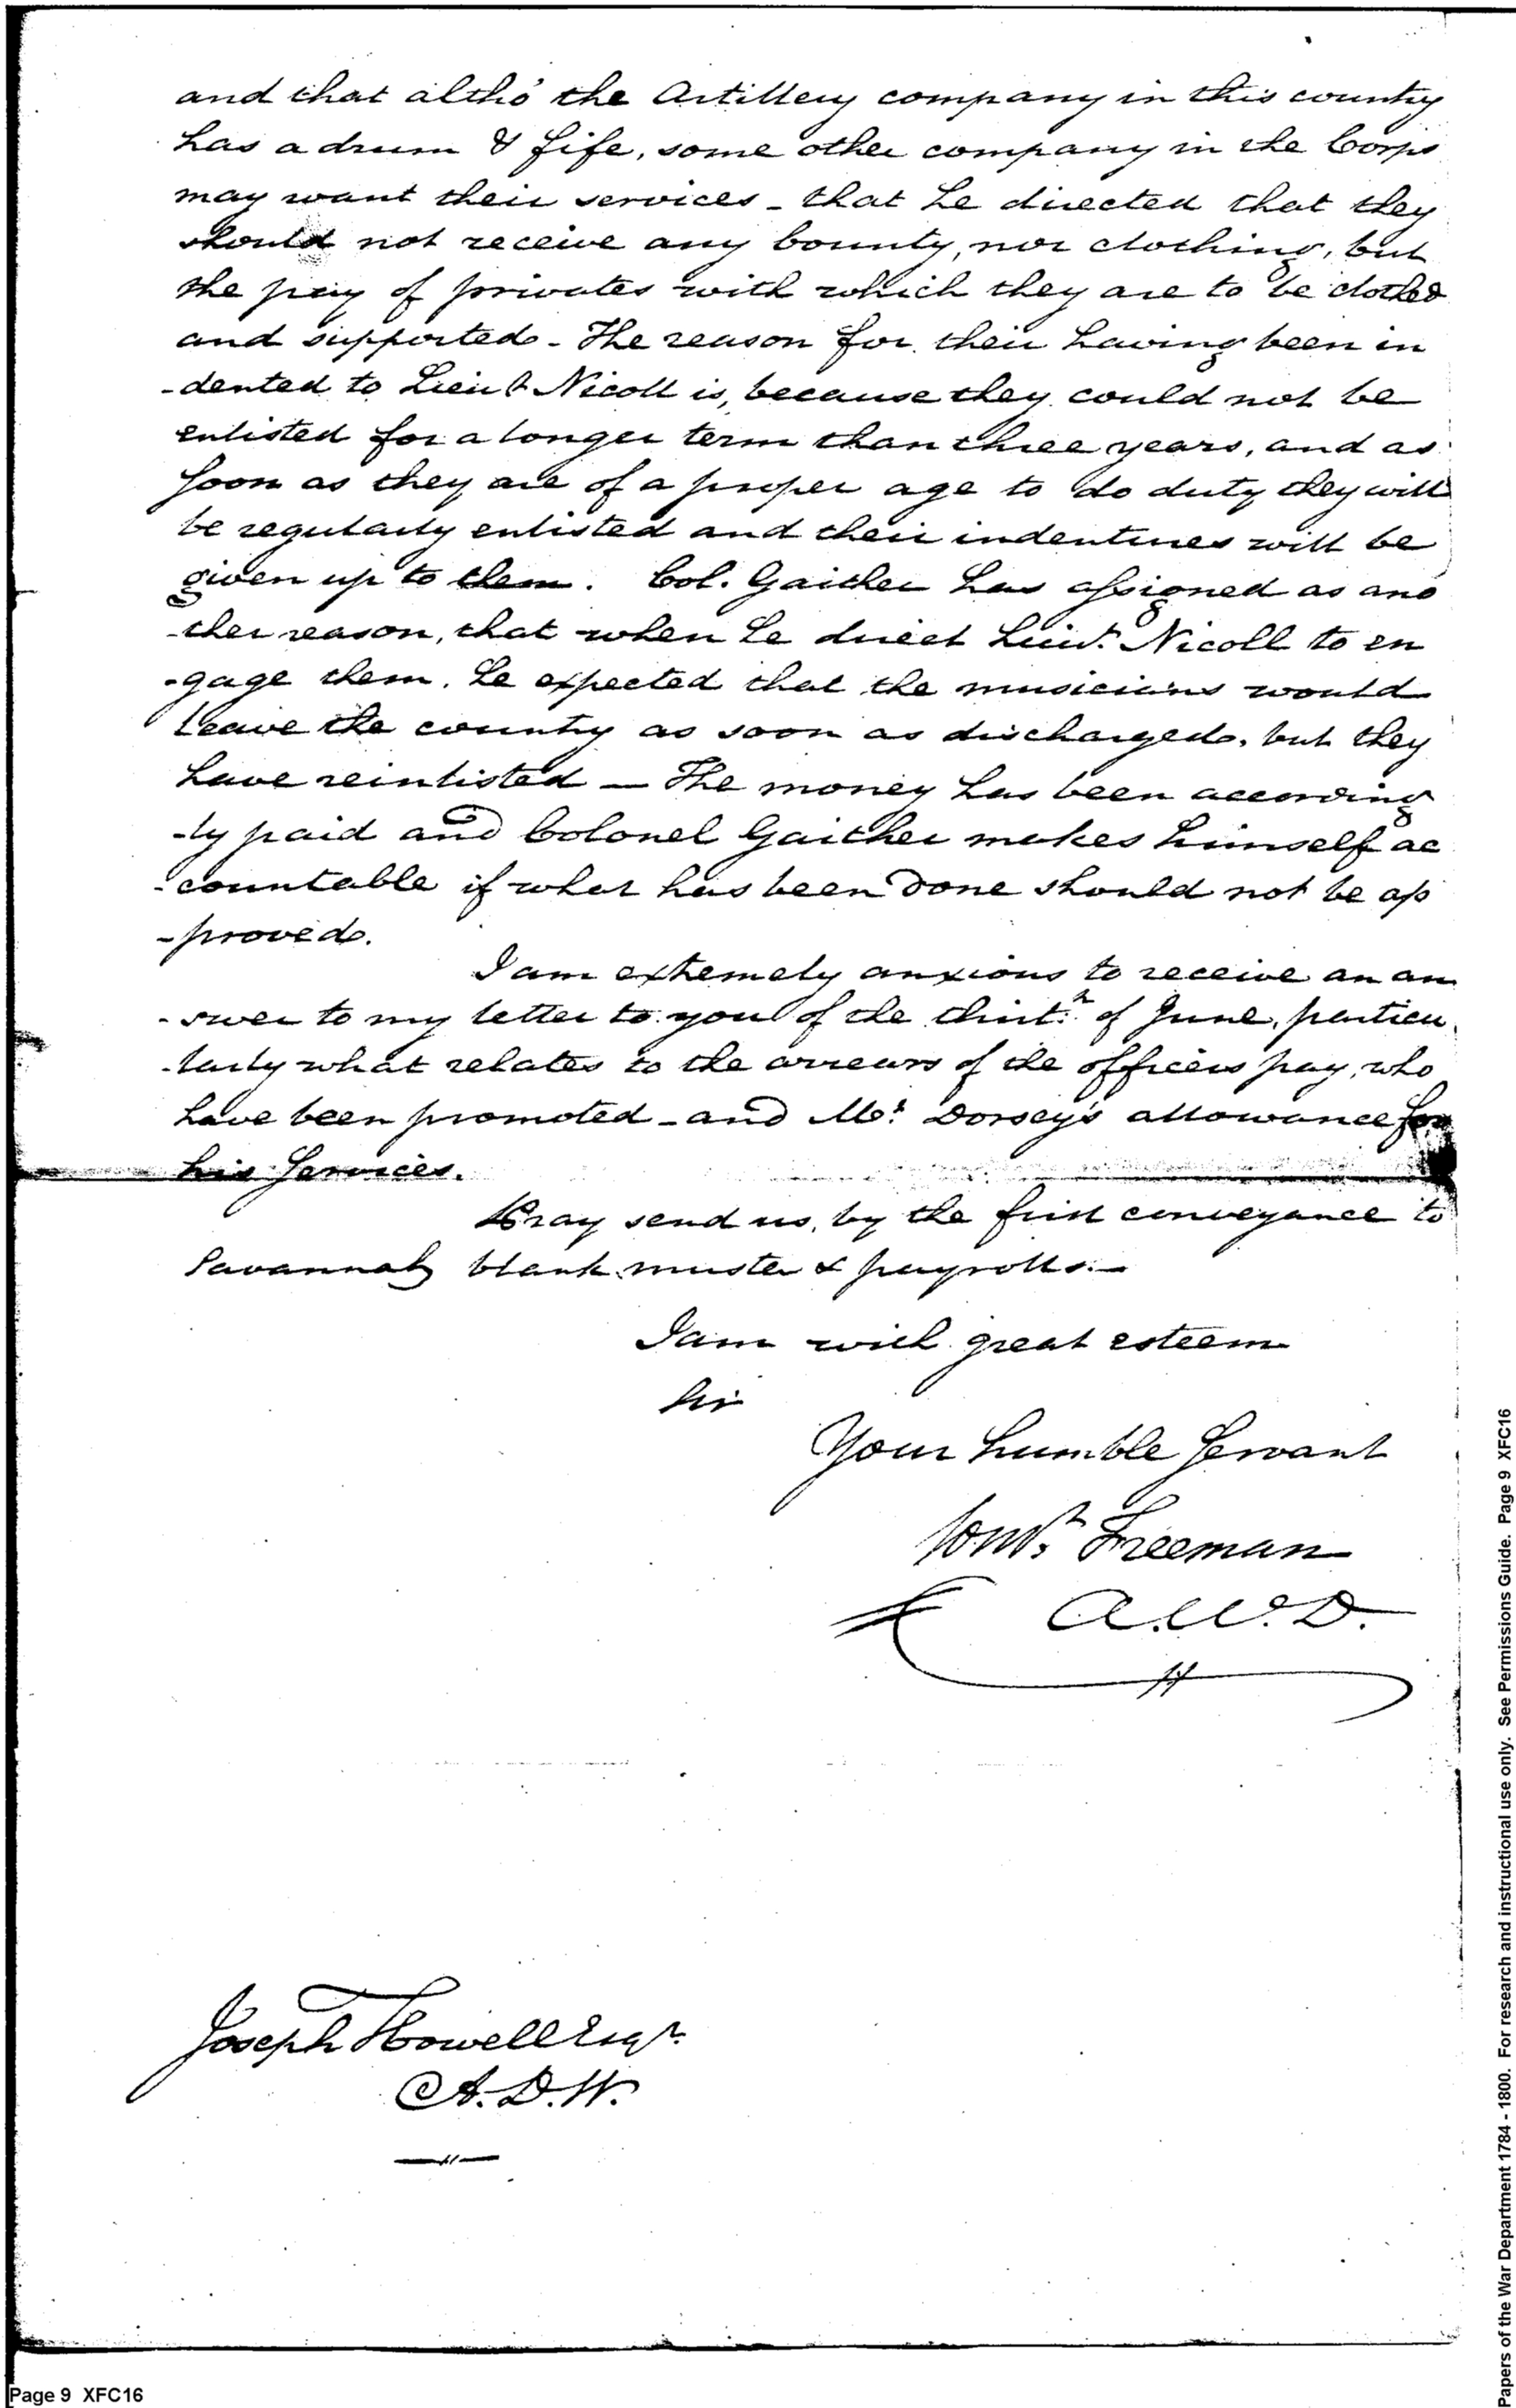 and that altho' the Artillery company in this country
has a drum & fife, some other company in the Corps
may want their services - that he directed that they
should not receive any bounty, nor clothing, but
the pay of privates with which they are to be clothed
and supported - The reason for their having been in
-dented to Lieut Nicoll is, because they could not be
enlisted for a longer term than three years, and as
soon as they are of a proper age to do duty they will
be regularly enlisted and their indentures will be
given up to them. Col. Gaither has assigned as ano
-ther reason, that when he direct Lieut. Nicoll to en
-gage them, he expected that the musicians would
leave the country as soon as discharged, but they
have reinlisted — The money has been according
-ly paid and Colonel Gaither makes himself ac
-countable if what has been done should not be ap
-proved.
I am extremely anxious to receive an an
-swer to my letter to you of the thirt.h of June, particu
-larly what relates to the arrears of the officers pay, who
have been promoted - and Mr. Dorsey's allowance for
his Services.
Pray send us, by the first conveyance to
Savannah blank muster & payrolls. -
I am with great esteem
Sir
Your humble Servant
Const. Freeman
A.W.D.
Joseph Howell Esqr.
A.D.W.
Page 9 XFC16
Papers of the War Department 1784 - 1800. For research and instructional use only. See Permissions Guide. Page 9 XFC16